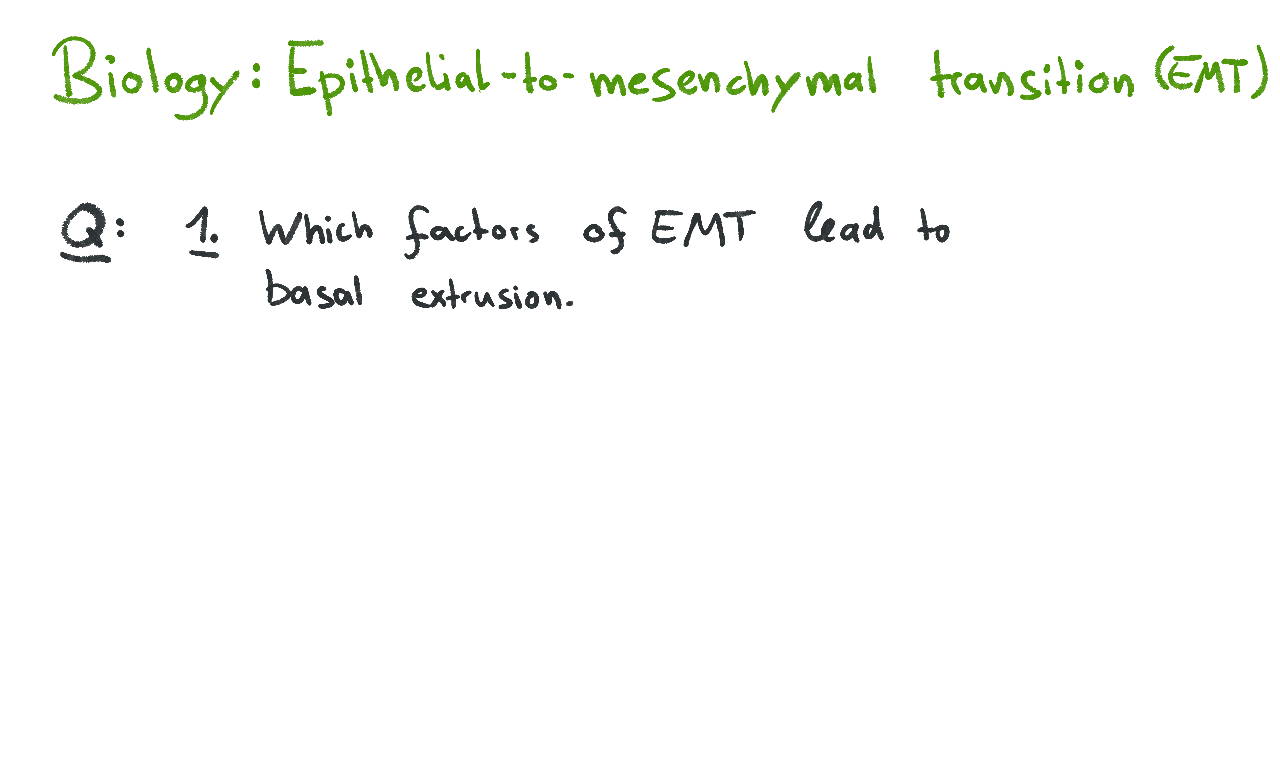 Biology: Epithelial-to-mesenchymal transition (EMT)
Q: 1. Which factors of EMT lead to
basal extrusion.